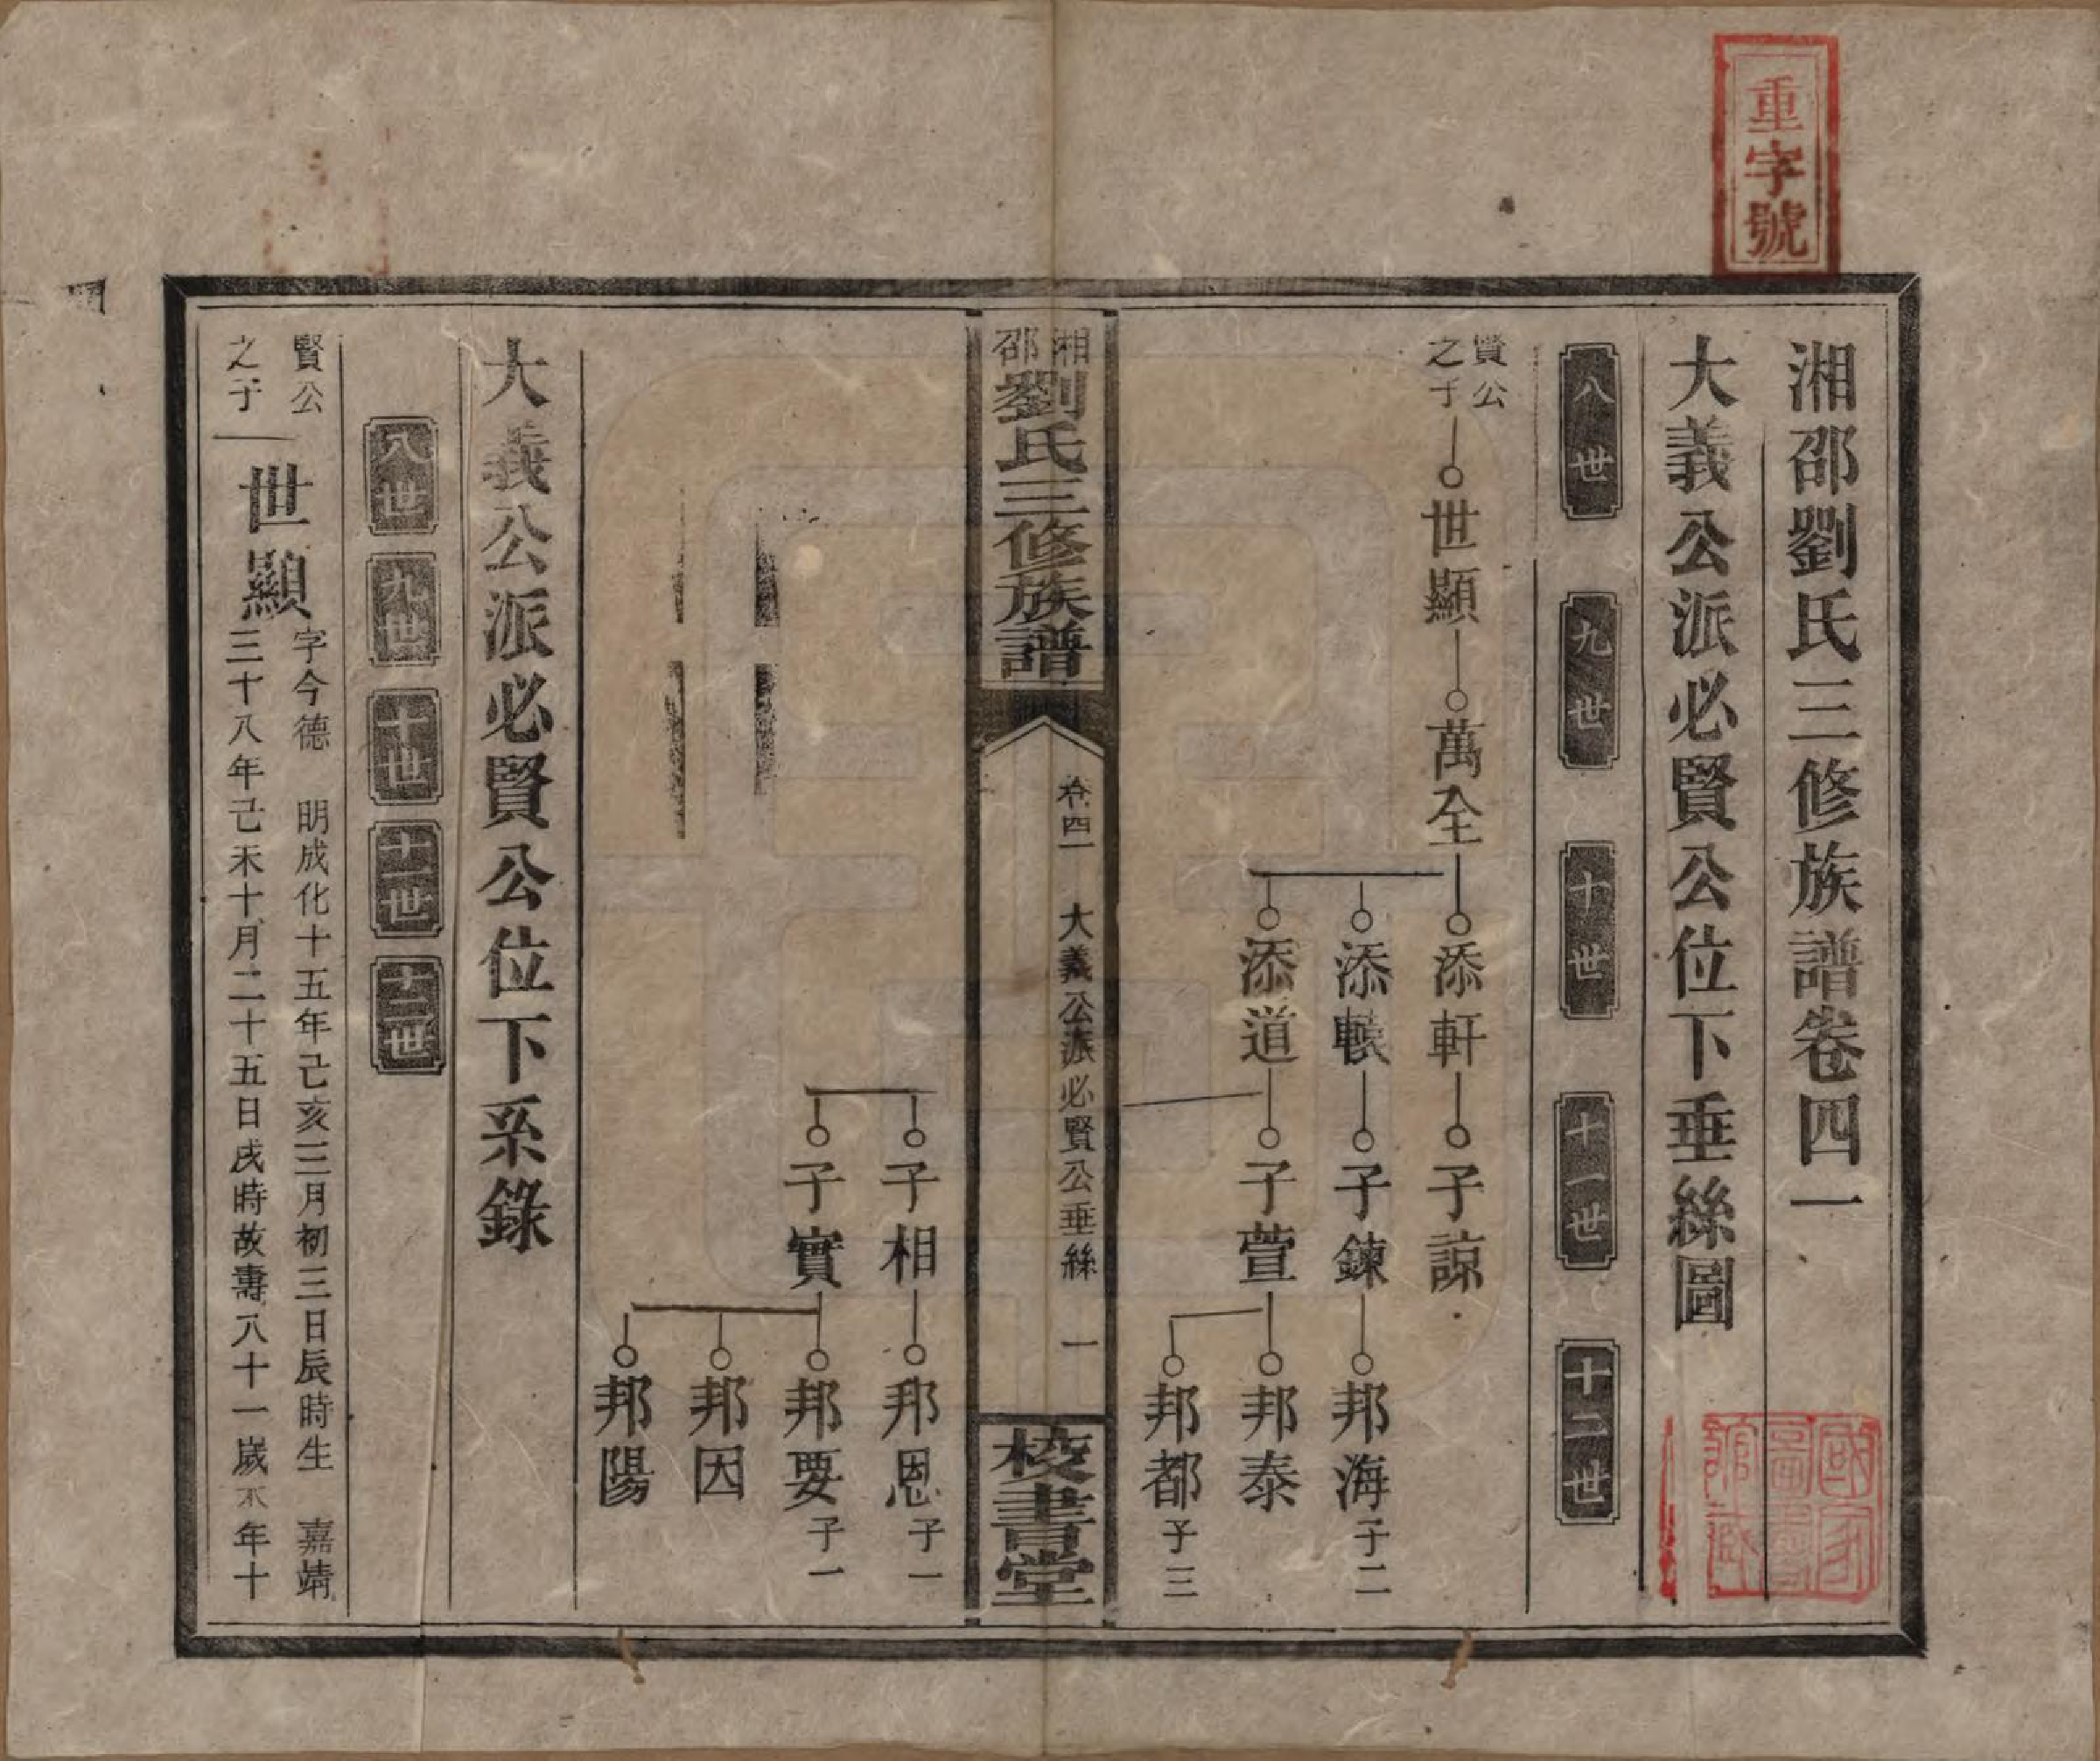 重字號
湘邵劉氏三修族譜卷四一
大義公派必賢公位下垂絲圖
八世 九世 十世 十一世 十二世
賢公之子 世顯 萬全 添軒 子諒
添轅 子鍊 邦海 子二
添道 子萱 邦泰
邦都 子三
湘邵劉氏三修族譜 卷四一 大義公派必賢公垂絲 一 校書堂
子相 邦恩 子一
子實 邦要 子一
邦因
邦陽
大義公派必賢公位下系錄
八世 九世 十世 十一世 十二世
賢公之子 世顯 字今德 明成化十五年己亥三月初三日辰時生 嘉靖
三十八年己未十月二十五日戌時故壽八十一歲 年十
國家圖書館藏